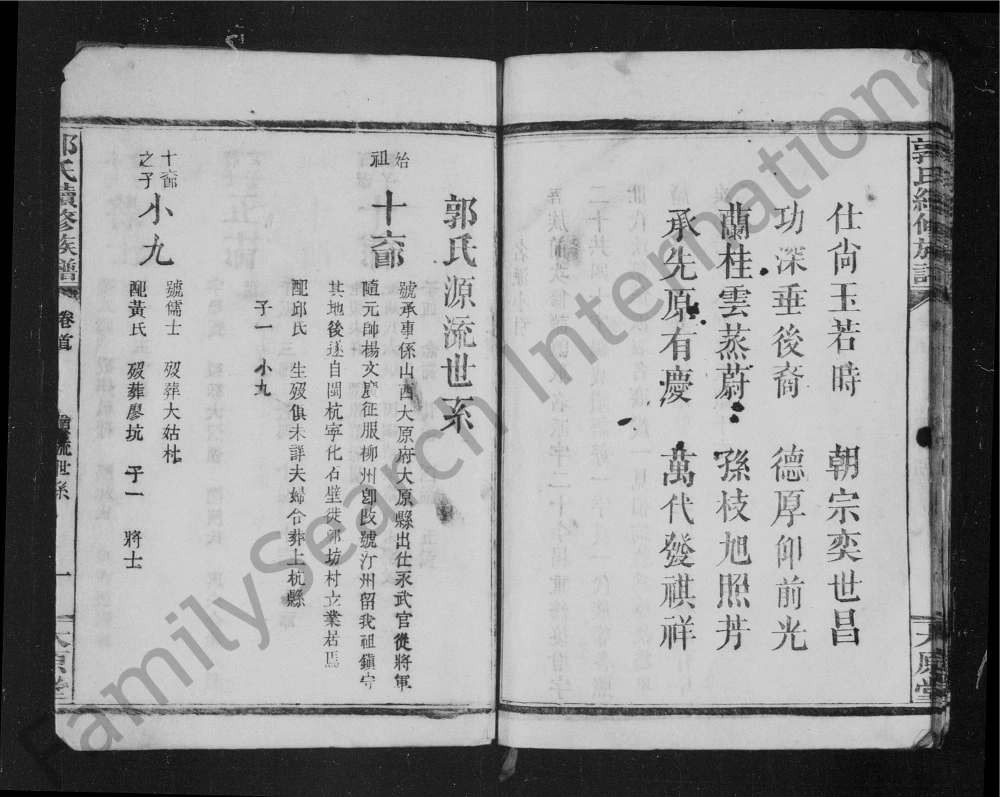 仕尙玉若時　朝宗奕世昌
功深垂後裔　德厚仰前光
蘭桂雲蒸蔚　孫枝旭照芳
承先原有慶　萬代發祺祥
郭氏源流世系
始祖　十𪪺
號承事係山西大原府大原縣出仕永武官從將軍
隨元帥楊文廣征服柳州卽改號汀州留我祖鎭守
其地後遂自閩杭寧化石壁徙郭坊村立業居焉
配邱氏　生歿俱未詳夫婦合葬上杭縣
子一　小九
之子　小九
號儒士　歿葬大姑杜
配黃氏　歿葬廖坑　子一　將士
郭氏續修族譜　卷首　源流世系　一　大原堂
郭氏續修族譜　大原堂
FamilySearch International